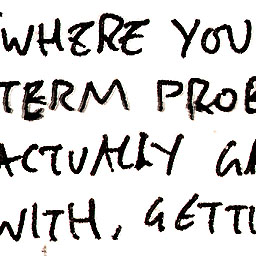 WHERE YOU
TERM PROB
ACTUALLY GA
WITH, GETTI